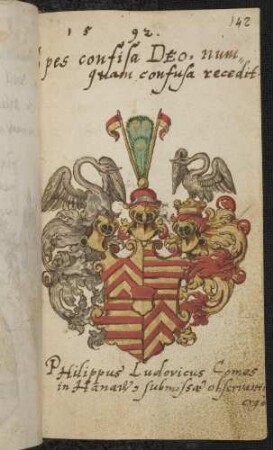 142
1592.
Spes confisa Deo, num,
quam confusa recedit.
Philippus Ludovicus Comes
in Hanaw, submissæ observanti
ergo